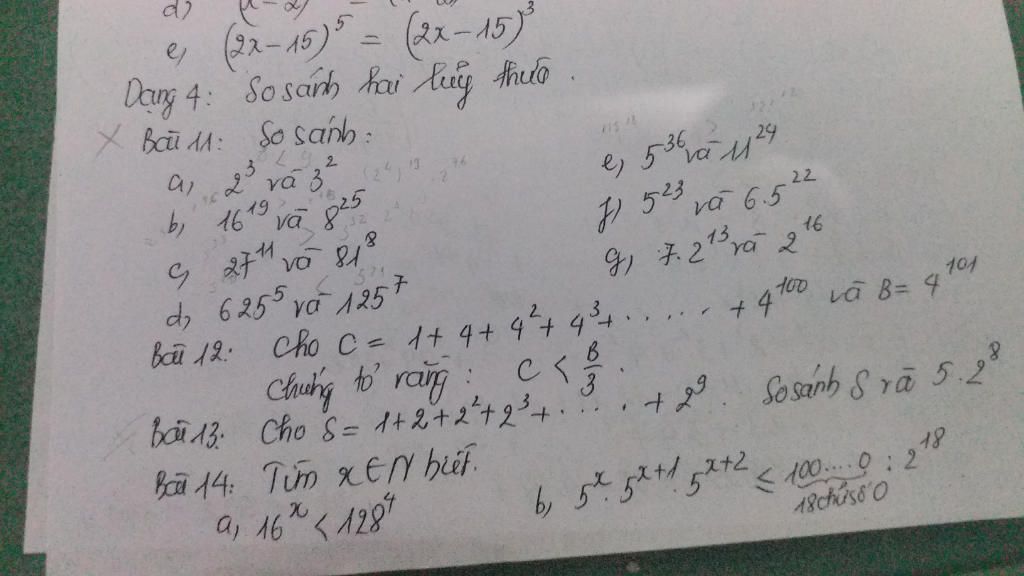 d, (x-2)
e, (2x-15)⁵ = (2x-15)³
Dạng 4: So sánh hai lũy thừa.
Bài 11: So sánh:
a, 2³ và 3²
b, 16¹⁹ và 8²⁵
c, 27¹¹ và 81⁸
d, 625⁵ và 125⁷
e, 5³⁶ và 11²⁴
f) 5²³ và 6.5²²
g, 7.2¹³ và 2¹⁶
Bài 12: Cho C = 1 + 4 + 4² + 4³ + ...... + 4¹⁰⁰ và B = 4¹⁰¹
Chứng tỏ rằng: C < B/3.
Bài 13: Cho S = 1+2+2²+2³+ ..... + 2⁹. So sánh S và 5.2⁸
Bài 14: Tìm x ∈ N biết.
a, 16ˣ < 128⁴
b, 5ˣ.5ˣ⁺¹.5ˣ⁺² ≤ 100....0 : 2¹⁸
18 chữ số 0